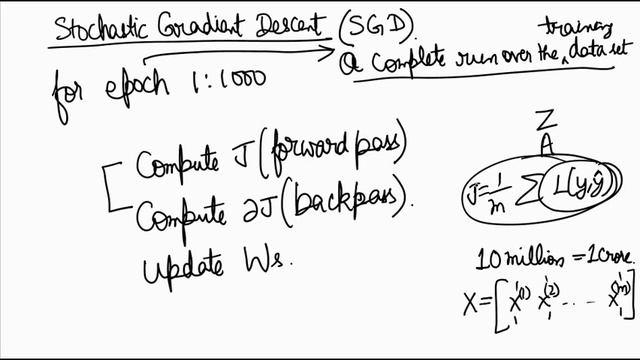 Stochastic Gradient Descent (SGD).
for epoch 1:1000
a complete run over the training data set
Compute J (forward pass)
Compute ∂J (backpass).
Update Ws.
Z
A
J = 1/m Σ L(y,ŷ)
10 million = 1 crore.
X = [x^(1) x^(2) .... x^(m)]